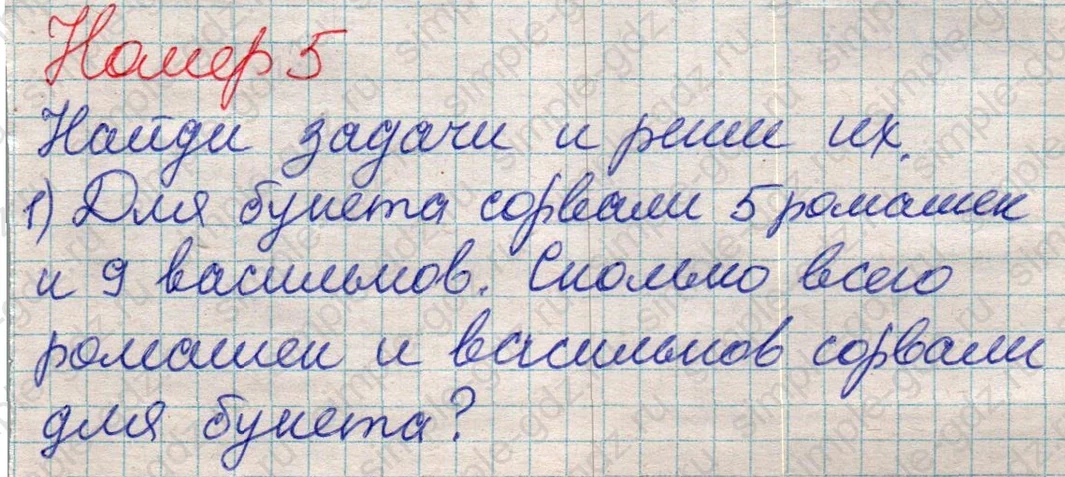 Номер 5
Найди задачи и реши их.
1) Для букета сорвали 5 ромашек
и 9 васильков. Сколько всего
ромашек и васильков сорвали
для букета?
simple-gdz.ru